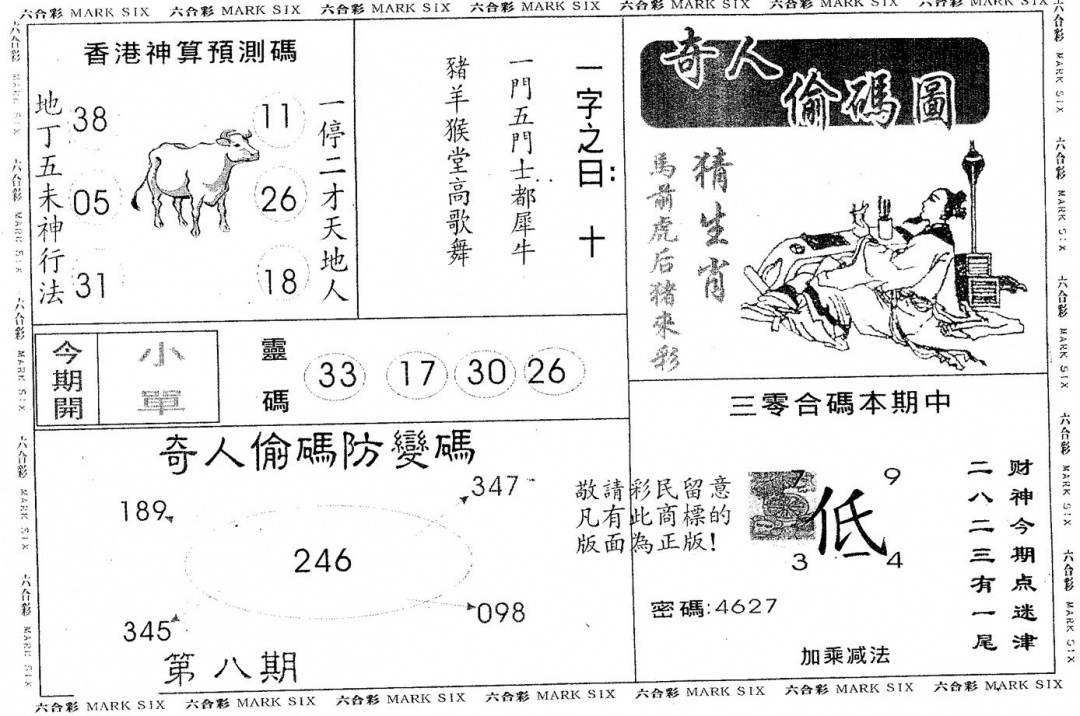 六合彩 MARK SIX 六合彩 MARK SIX 六合彩 MARK SIX 六合彩 MARK SIX 六合彩 MARK SIX 六合彩 MARK SIX 六合彩 MARK SIX
香港神算預測碼
地丁五未神行法
38
05
31
11
26
18
一停二才天地人
一字之曰: 十
一門五門士都犀牛
豬羊猴堂高歌舞
奇人偷碼圖
猜生肖
馬前虎后猪來彩
今期開
小單
靈碼
33 17 30 26
三零合碼本期中
奇人偷碼防變碼
189
347
246
345
098
第八期
敬請彩民留意
凡有此商標的
版面為正版!
7 9
低
3 4
财神今期点迷津
二八二三有一尾
密碼:4627
加乘减法
六合彩 MARK SIX 六合彩 MARK SIX 六合彩 MARK SIX 六合彩 MARK SIX 六合彩 MARK SIX 六合彩 MARK SIX 六合彩 MARK SIX